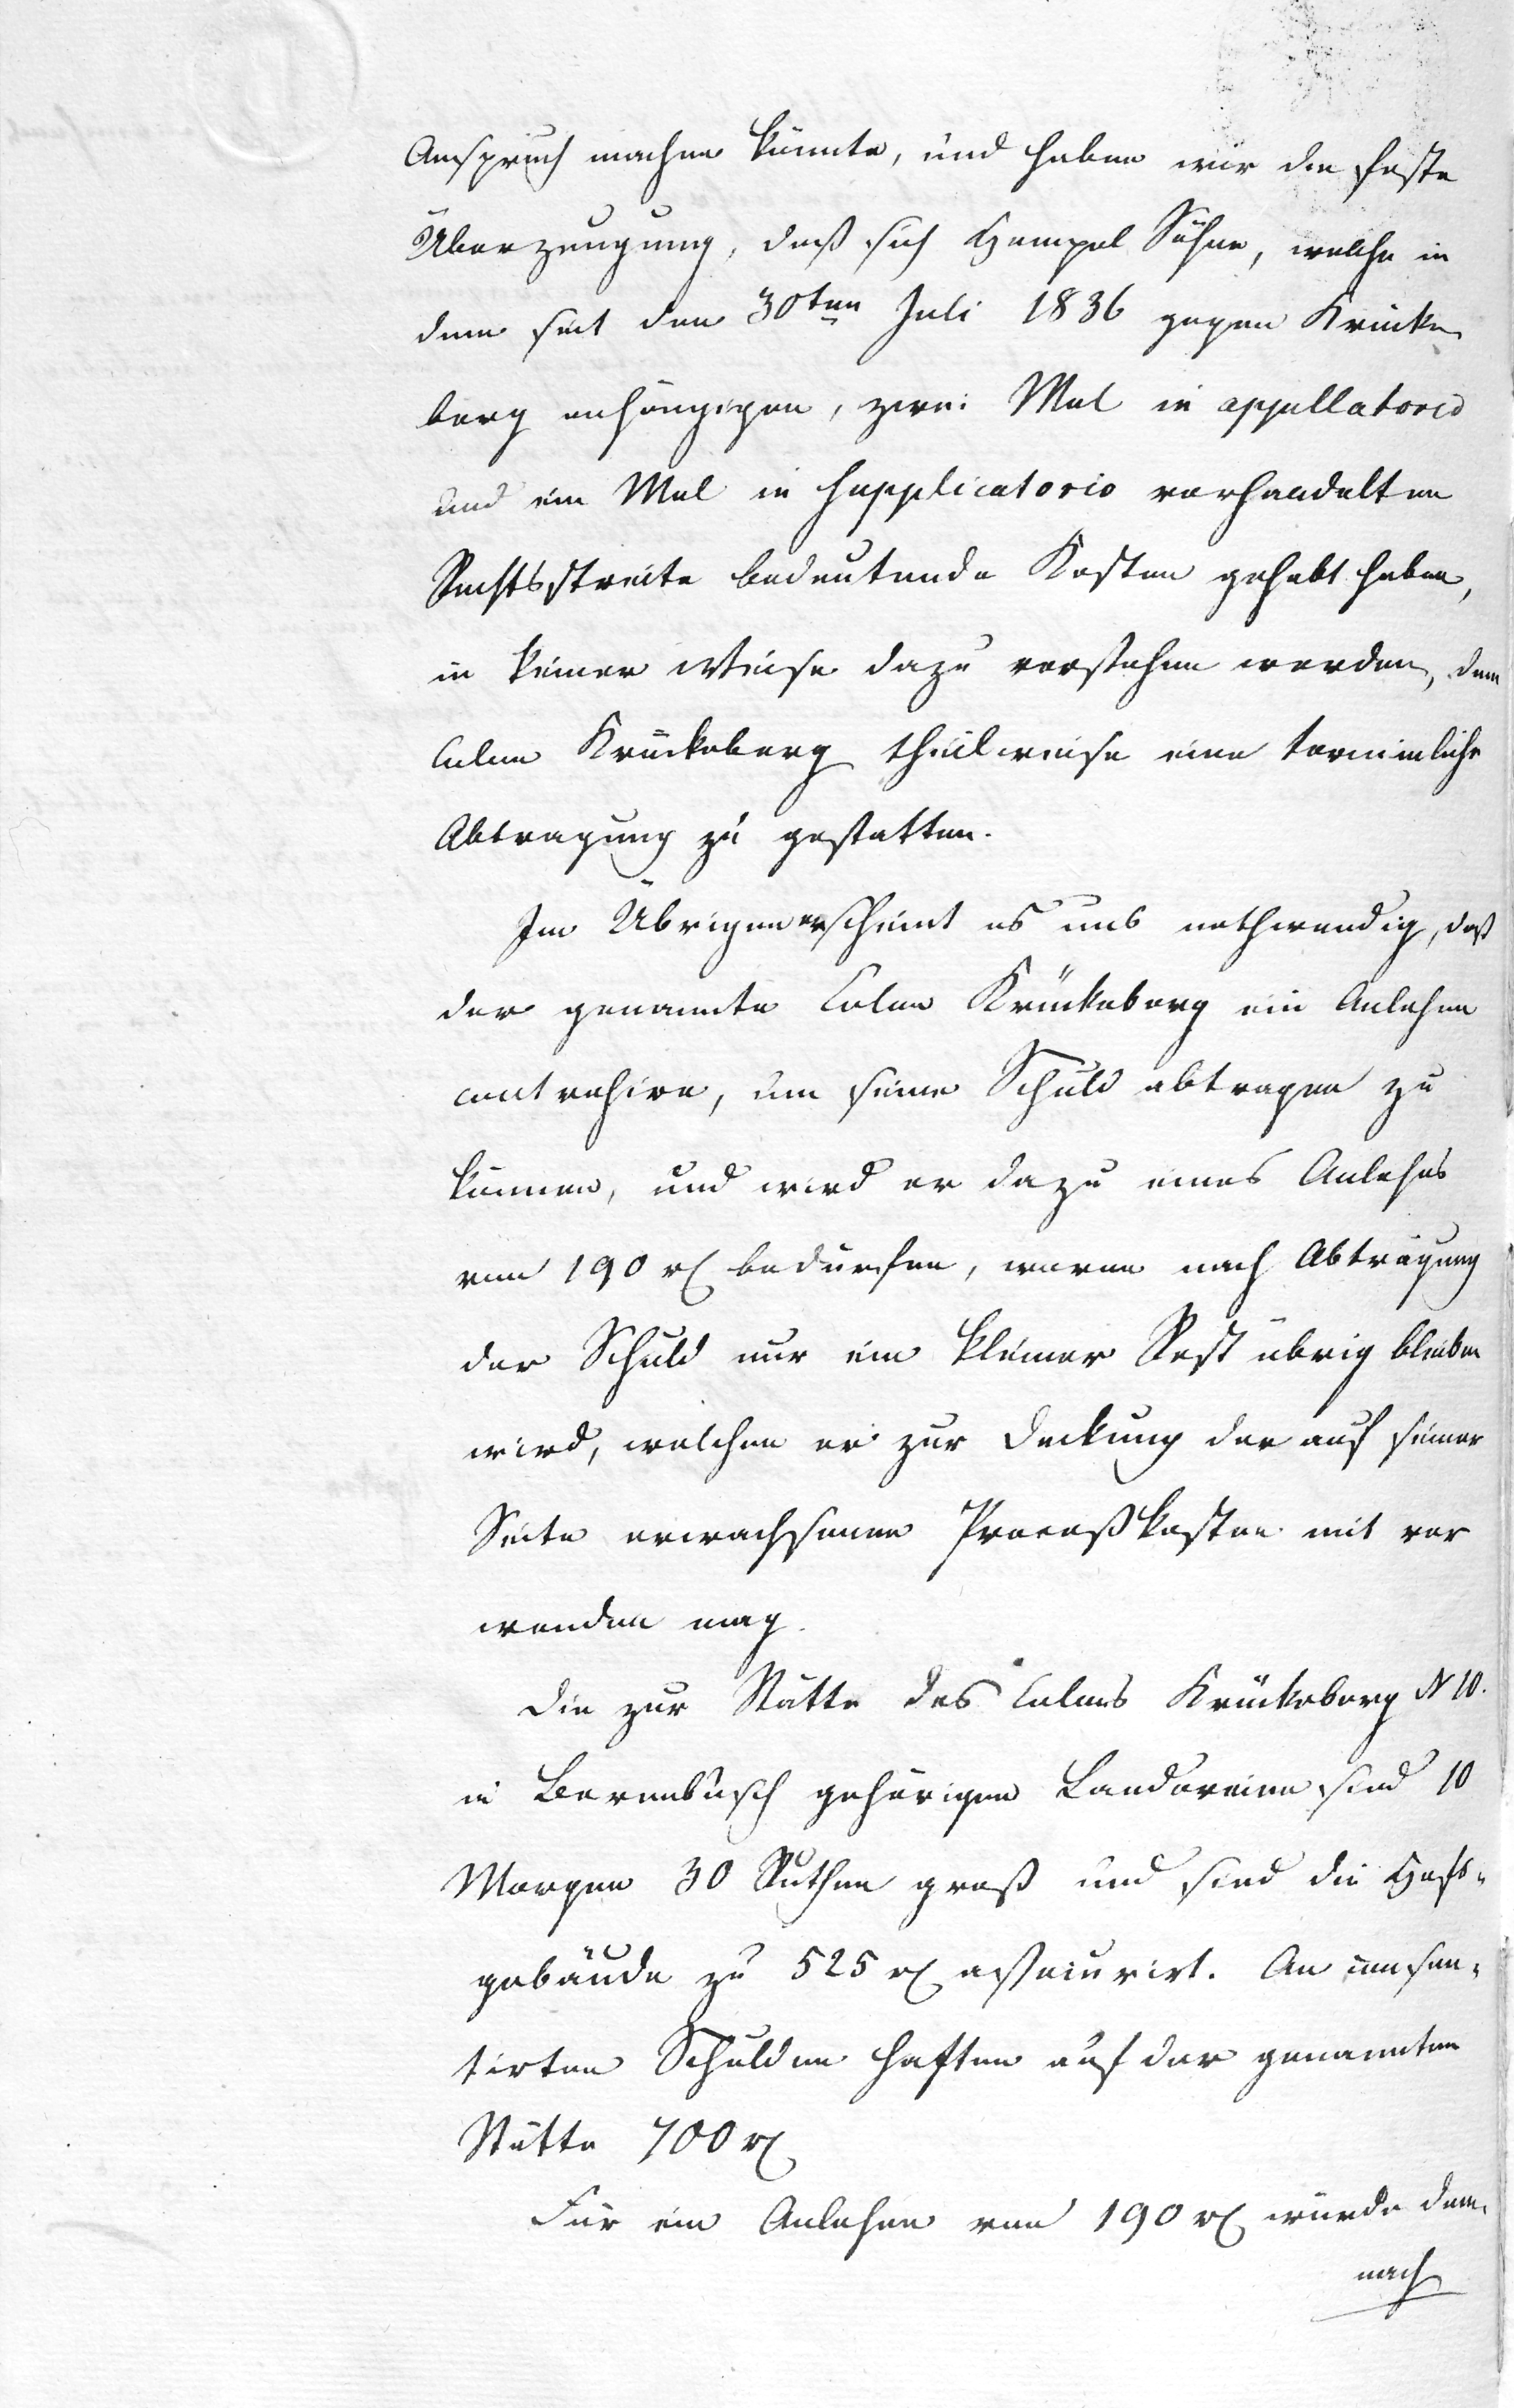 Anspruch machen könnte, und haben wir die feste
Überzeugung, daß sich Hempel Söhne, welche in
dem seit den 30ten Juli 1836 gegen Krücke
berg anhängigen, zwei Mal in appellatorio
und ein Mal in supplicatorio verhandelten
Rechtsstreite bedeutende Kosten gehabt haben,
in keiner Weise dazu verstehen werden, dem
Colon Krückeberg theilweise eine terminliche
Abtragung zu gestatten.
Im Übrigen erscheint es uns nothwendig, daß
der genannte Colon Krückeberg ein Anlehen
contrahire, um seine Schuld abtragen zu
können, und wird er dazu eines Anlehns
von 190 rt bedürfen, wovon nach Abtragung
der Schuld nur ein kleiner Rest übrig bleiben
wird, welchen er zur Deckung der auf seiner
Seite erwachsenen Proceßkosten mit ver
wenden mag.
Die zur Stätte des Colons Krückeberg N 10.
in Berenbusch gehörigen Ländereien sind 10
Morgen 30 Ruthen groß und sind die Hofs-
gebäude zu 525 rt assecurirt. An consen-
tirten Schulden haften auf der genannten
Stätte 700 rt
Für ein Anlehen von 190 rt würde dem-
nach